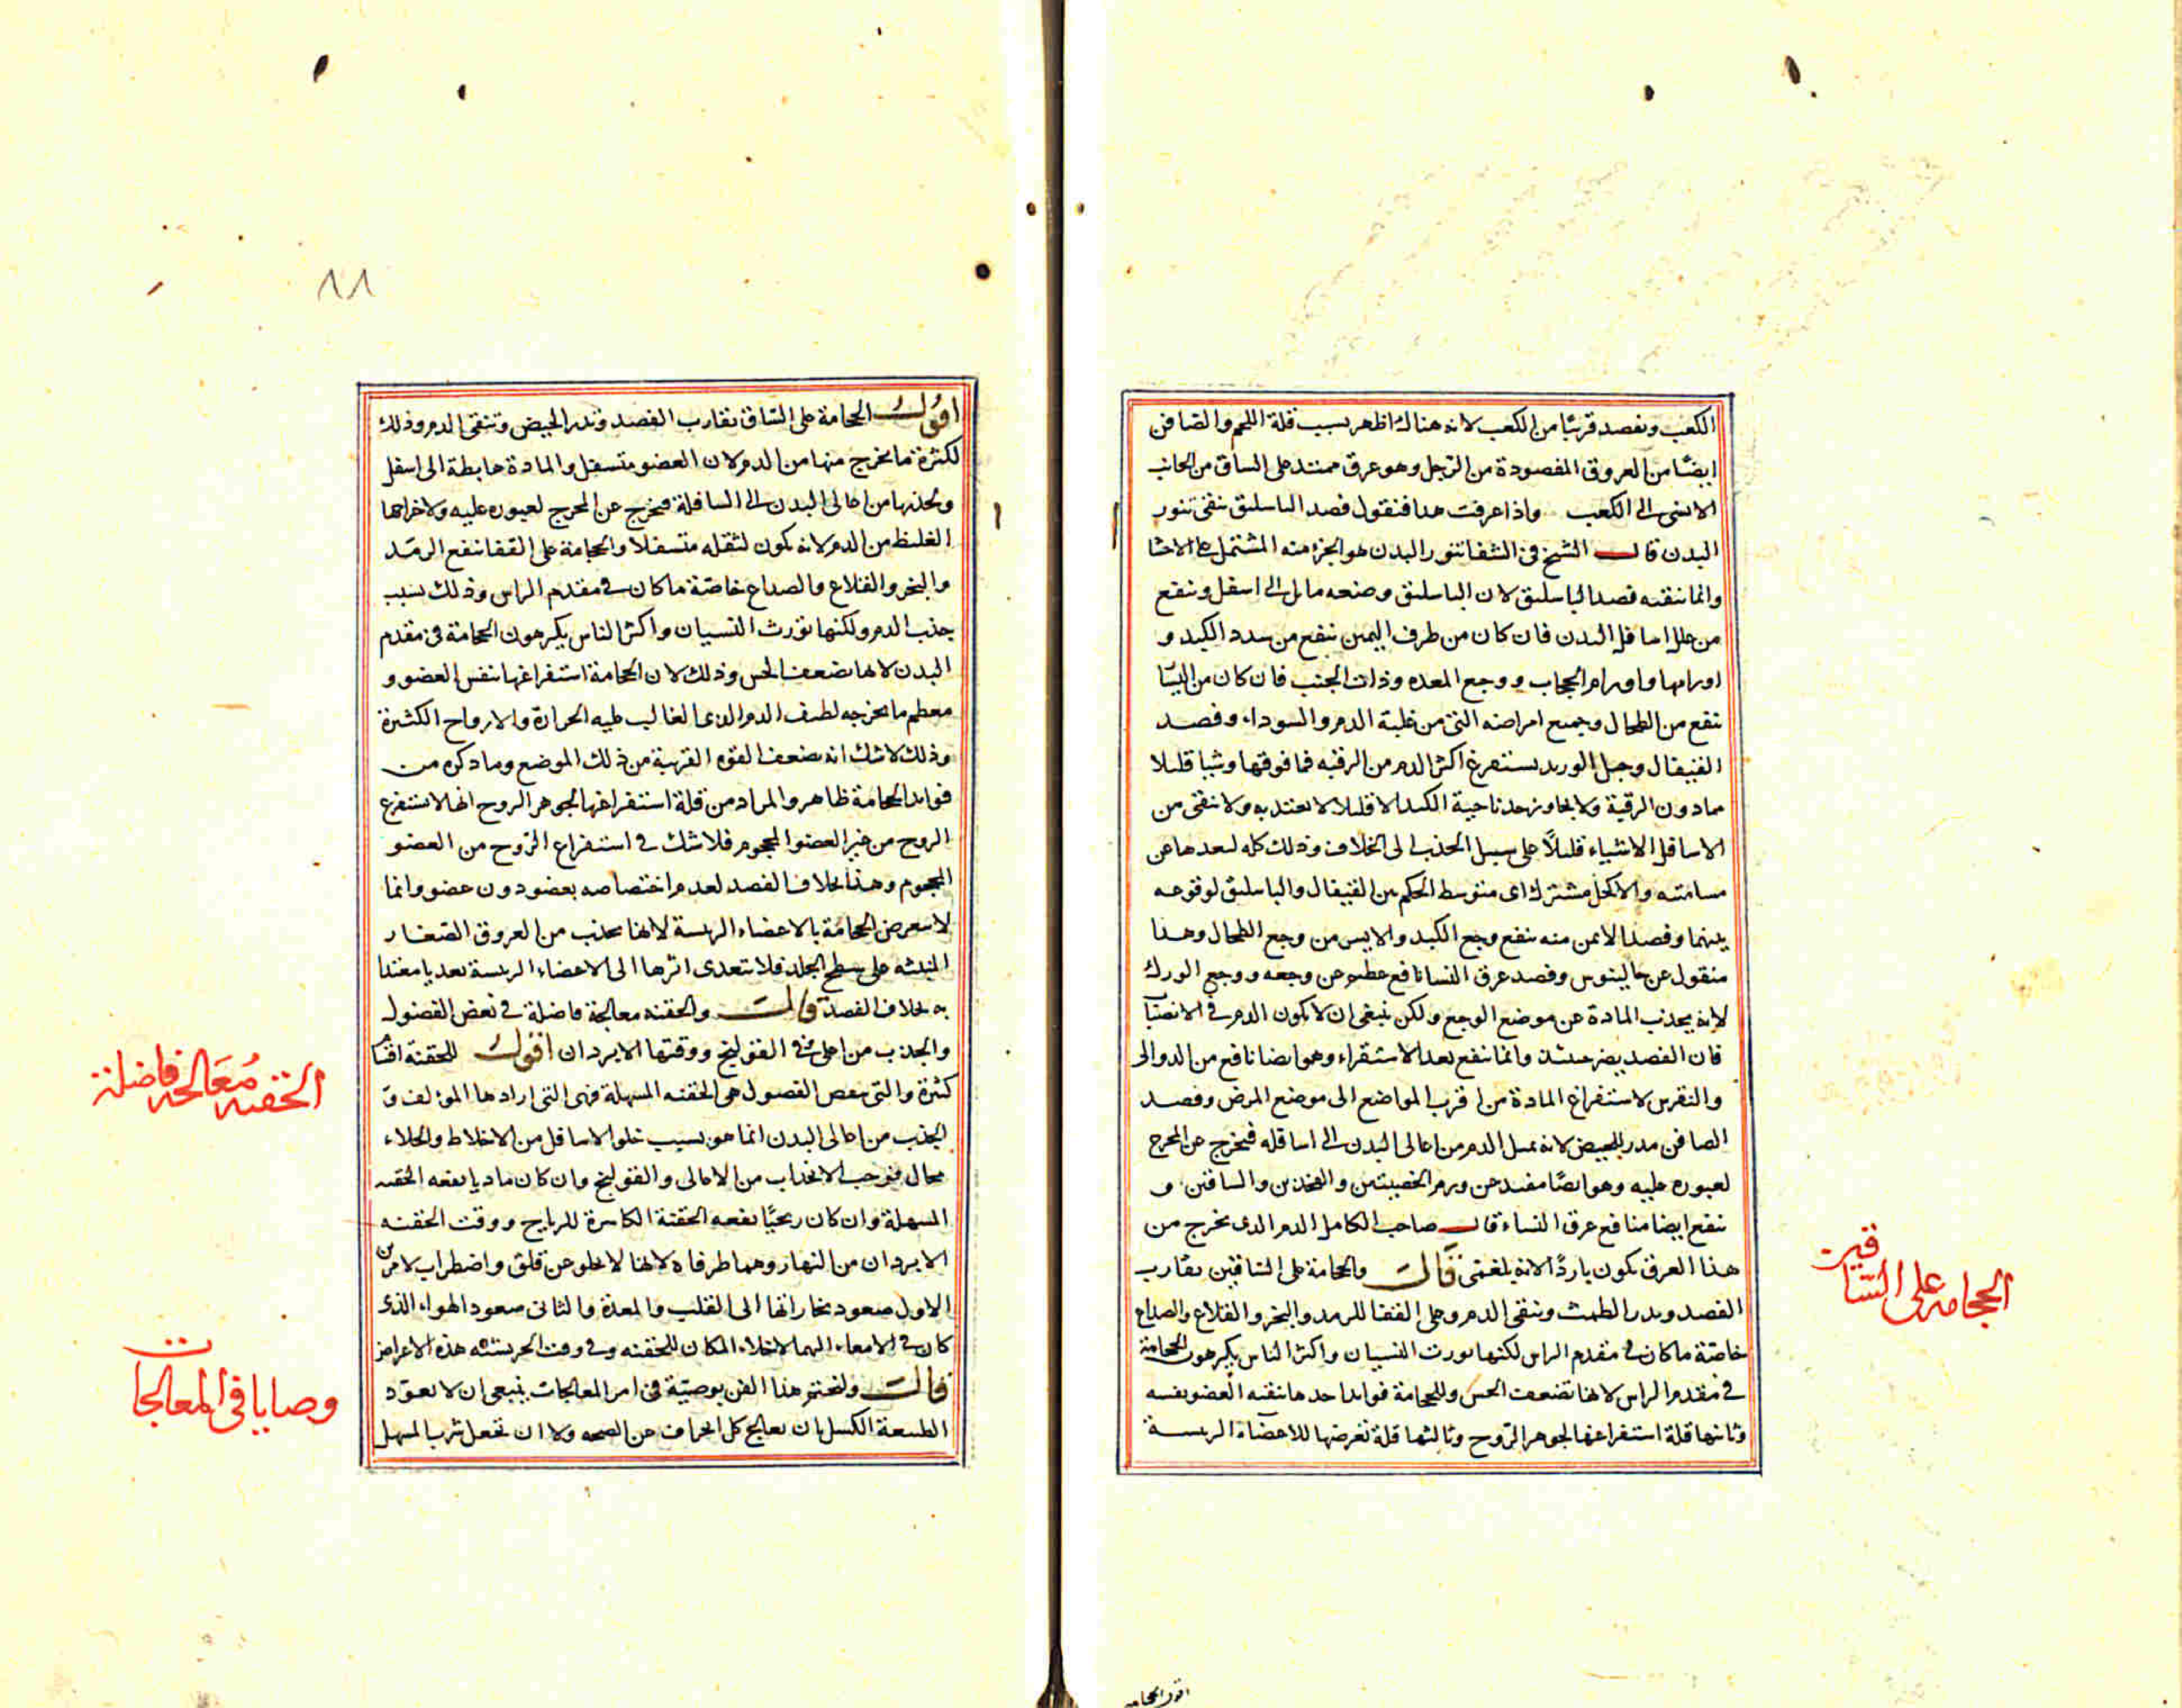 الكعب ويفصد قريبًا من الكعب لانه هناك اظهر بسبب قلة اللحم والصافن
ايضًا من العروق المفصودة من الرجل وهو عرق ممتد على الساق من الجانب
الانسى الى الكعب واذا عرفت هذا فنقول فصد الباسليق ينقى تنور
البدن قال الشيخ فى الشفا تنور البدن هو الجزء منه المشتمل على الاحشا
وانما ينقيه فصد الباسليق لان الباسليق وضعه مايل الى اسفل وينفع
من علل اسافل البدن فان كان من طرف اليمين ينفع من سدد الكبد و
اورامها واورام الحجاب ووجع المعده وذات الجنب فان كان من اليسا
ينفع من الطحال وجميع امراضه التى من غلبة الدم والسوداء وفصد
القيفال وحبل الوريد يستفرغ اكثر الدم من الرقبه فما فوقها وشيا قليلا
مما دون الرقبة ولا يجاوز حد ناحية الكبد الا قليلا لا يعتد به ولا ينقى من
الاسافل الا شياء قليلاً على سبيل الجذب الى الخلاف وذلك كله لبعدها عن
مسامته والاكحل مشترك اى متوسط الحكم بين القيفال والباسليق لوقوعه
بينهما وفصد الايمن منه ينفع وجع الكبد والايسر من وجع الطحال وهذا
منقول عن جالينوس وفصد عرق النسا نافع عظيم عن وجعه ووجع الورك
لانه يجذب المادة عن موضع الوجع ولكن ينبغى ان لا يكون الدم فى الانصبا
فان الفصد يضر حينئذ وانما ينفع بعد الاستقراء وهو ايضا نافع من الدوالى
والنقرس لاستفراغ المادة من اقرب المواضع الى موضع المرض وفصد
الصافن مدر للحيض لانه يميل الدم من اعالى البدن الى اسافله فيخرج عن المخرج
لعبوره عليه وهو ايضًا مفيد عن ورم الخصيتين والفخذين والساقين و
ينفع ايضا منافع عرق النساء قال صاحب الكامل الدم الذى يخرج من
هذا العرق يكون باردًا لانه بلغمى قال والحجامة على الساقين يقارب
الفصد ويدر الطمث وينقى الدم وعلى القفا للرمد والبخر والقلاع والصداع
خاصّة ما كان فى مقدم الراس لكنها يورث النسيان واكثر الناس يكرهون الحجامة
فى مقدم الراس لانها تضعف الحس وللحجامة فوايد احدها تنقيه العضو نفسه
وثانيها قلة استفراغها لجوهر الرّوح وثالثها قلة تعرضها للاعضاء الريسة
الحجامه على الساقين
اقول الحجامه
١١
اقول الحجامة على الساق يقارب الفصد وتدر الحيض وتنقى الدم وذلك
لكثرة ما يخرج منها من الدم لان العضو متسفل والمادة هابطة الى اسفل
ويجذبها من اعالى البدن الى السافلة فيخرج عن المخرج لعبوره عليه ولاخراجها
الغليظ من الدم لانه يكون لثقله متسفلا والحجامة على القفا ينفع الرمد
والبخر والقلاع والصداع خاصّة ما كان فى مقدم الراس وذلك بسبب
جذب الدم ولكنها تورث النسيان واكثر الناس يكرهون الحجامة فى مقدم
البدن لانها يضعف الحس وذلك لان الحجامة استفراغها نفس العضو و
معظم ما يخرجه لطيف الدم الذى الغالب عليه الحرارة والارواح الكثيرة
وذلك لا شك انه يضعف القوه القريبة من ذلك الموضع وما ذكره من
فوايد الحجامة ظاهر والمراد من قلة استفراغها لجوهر الروح انها لا تستفرغ
الروح من غير العضو المحجوم فلا شك فى استفراغ الرّوح من العضو
المحجوم وهذا بخلاف الفصد لعدم اختصاصه بعضو دون عضو وانما
لا يتعرض الحجامة بالاعضاء الريسة لانها يجذب من العروق الصغار
المنبثه على سطح الجلد فلا يتعدى اثرها الى الاعضاء الريسة تعديا معتدا
به بخلاف الفصد قال والحقنه معالجة فاضلة فى نفض الفضول
والجذب من اعلى فى القولنج ووقتها الابردان اقول للحقنة اقسا
كثيرة والتى تنفض الفضول هى الحقنه المسهلة فهى التى ارادها المؤلف و
الجذب من اعالى البدن انما هو بسبب خلو الاسافل من الاخلاط والخلاء
محال فيوجب الانجذاب من الاعالى والقولنج وان كان ماديا ينفعه الحقنه
المسهلة وان كان ريحيًا ينفعه الحقنة الكاسرة للرياح ووقت الحقنه
الابردان من النهار وهما طرفاه لانها لا يخلو عن قلق واضطراب لامرين
الاول صعود بخاراتها الى القلب والمعدة والثانى صعود الهواء الذى
كان فى الامعاء اليهما لاخلاء المكان للحقنه وفى وقت الحر يشتد هذه الاعراض
قال ولنختم هذا الفن بوصيّة فى امر المعالجات ينبغى ان لا يعوّد
الطبيعة الكسل بان يعالج كل انحراف عن الصحه ولا ان تجعل شرب المسهل
الحقنه مُعَالجه فاضلة
وصايا فى المعالجات